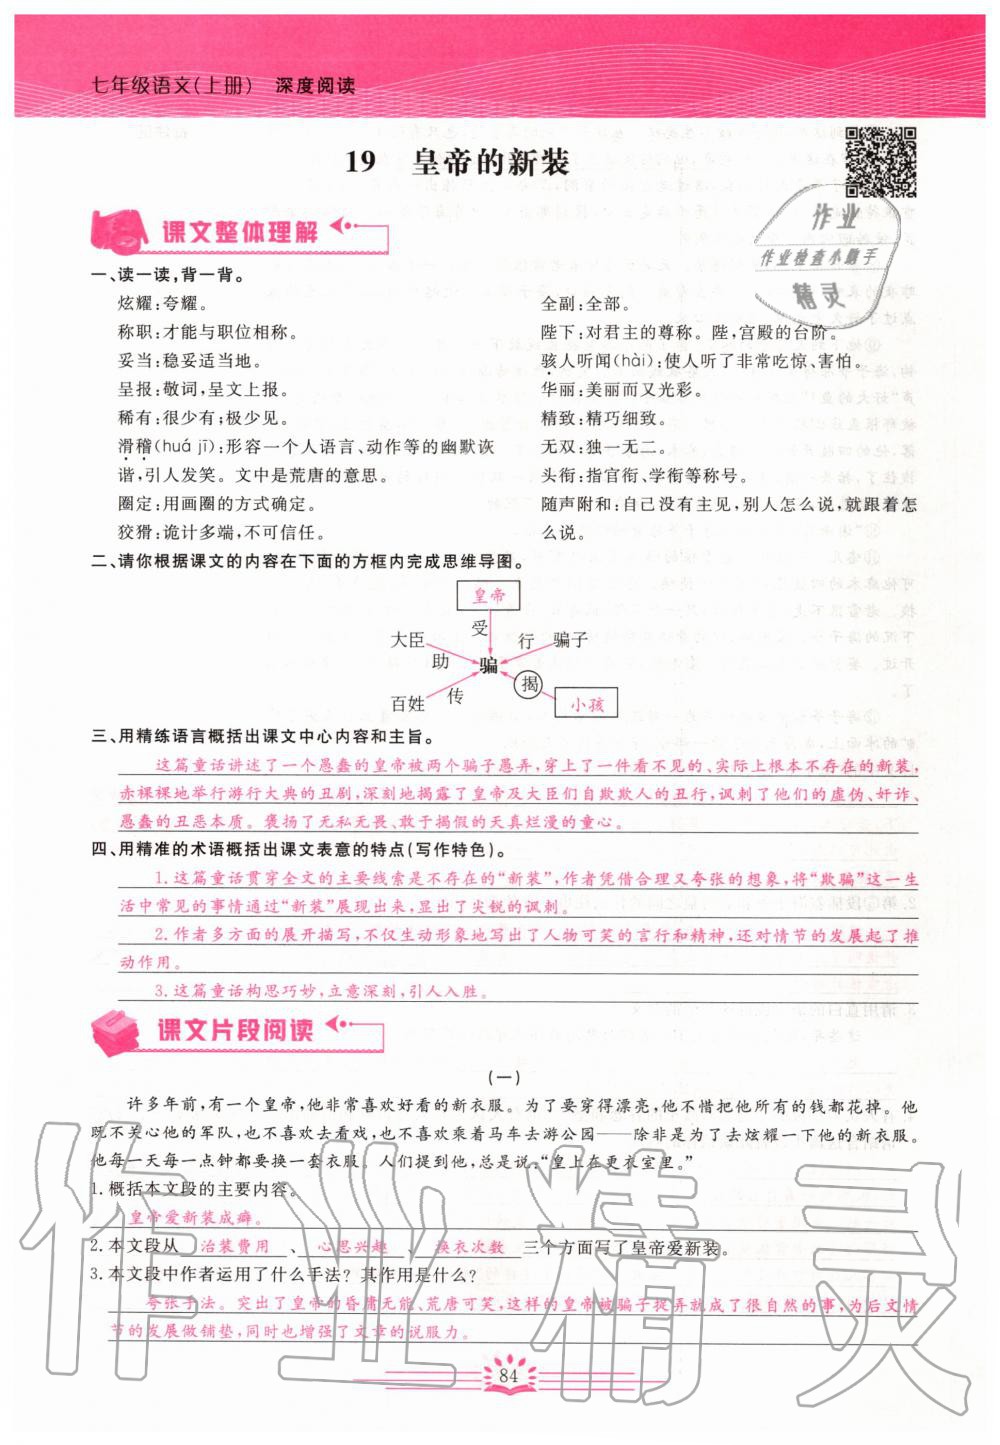 七年级语文(上册) 深度阅读
19 皇帝的新装
作业
作业检查小助手
精灵
课文整体理解
一、读一读,背一背。
炫耀:夸耀。
称职:才能与职位相称。
妥当:稳妥适当地。
呈报:敬词,呈文上报。
稀有:很少有;极少见。
滑稽(huá jī):形容一个人语言、动作等的幽默诙
谐,引人发笑。文中是荒唐的意思。
圈定:用画圈的方式确定。
狡猾:诡计多端,不可信任。
全副:全部。
陛下:对君主的尊称。陛,宫殿的台阶。
骇人听闻(hài):使人听了非常吃惊、害怕。
华丽:美丽而又光彩。
精致:精巧细致。
无双:独一无二。
头衔:指官衔、学衔等称号。
随声附和:自己没有主见,别人怎么说,就跟着怎
么说。
二、请你根据课文的内容在下面的方框内完成思维导图。
皇帝
受
大臣 助 行 骗子
骗
百姓 传 揭 小孩
三、用精练语言概括出课文中心内容和主旨。
这篇童话讲述了一个愚蠢的皇帝被两个骗子愚弄,穿上了一件看不见的、实际上根本不存在的新装,
赤裸裸地举行游行大典的丑剧,深刻地揭露了皇帝及大臣们自欺欺人的丑行,讽刺了他们的虚伪、奸诈、
愚蠢的丑恶本质。褒扬了无私无畏、敢于揭假的天真烂漫的童心。
四、用精准的术语概括出课文表意的特点(写作特色)。
1.这篇童话贯穿全文的主要线索是不存在的“新装”,作者凭借合理又夸张的想象,将“欺骗”这一生
活中常见的事情通过“新装”展现出来,显出了尖锐的讽刺。
2.作者多方面的展开描写,不仅生动形象地写出了人物可笑的言行和精神,还对情节的发展起了推
动作用。
3.这篇童话构思巧妙,立意深刻,引人入胜。
课文片段阅读
(一)
许多年前,有一个皇帝,他非常喜欢好看的新衣服。为了要穿得漂亮,他不惜把他所有的钱都花掉。他
既不关心他的军队,也不喜欢去看戏,也不喜欢乘着马车去游公园——除非是为了去炫耀一下他的新衣服。
他每一天每一点钟都要换一套衣服。人们提到他,总是说:“皇上在更衣室里。”
1.概括本文段的主要内容。
皇帝爱新装成癖。
2.本文段从 治装费用 、 心思兴趣 、 换衣次数 三个方面写了皇帝爱新装。
3.本文段中作者运用了什么手法?其作用是什么?
夸张手法。突出了皇帝的昏庸无能、荒唐可笑,这样的皇帝被骗子捉弄就成了很自然的事,为后文情
节的发展做铺垫,同时也增强了文章的说服力。
作业精灵
84